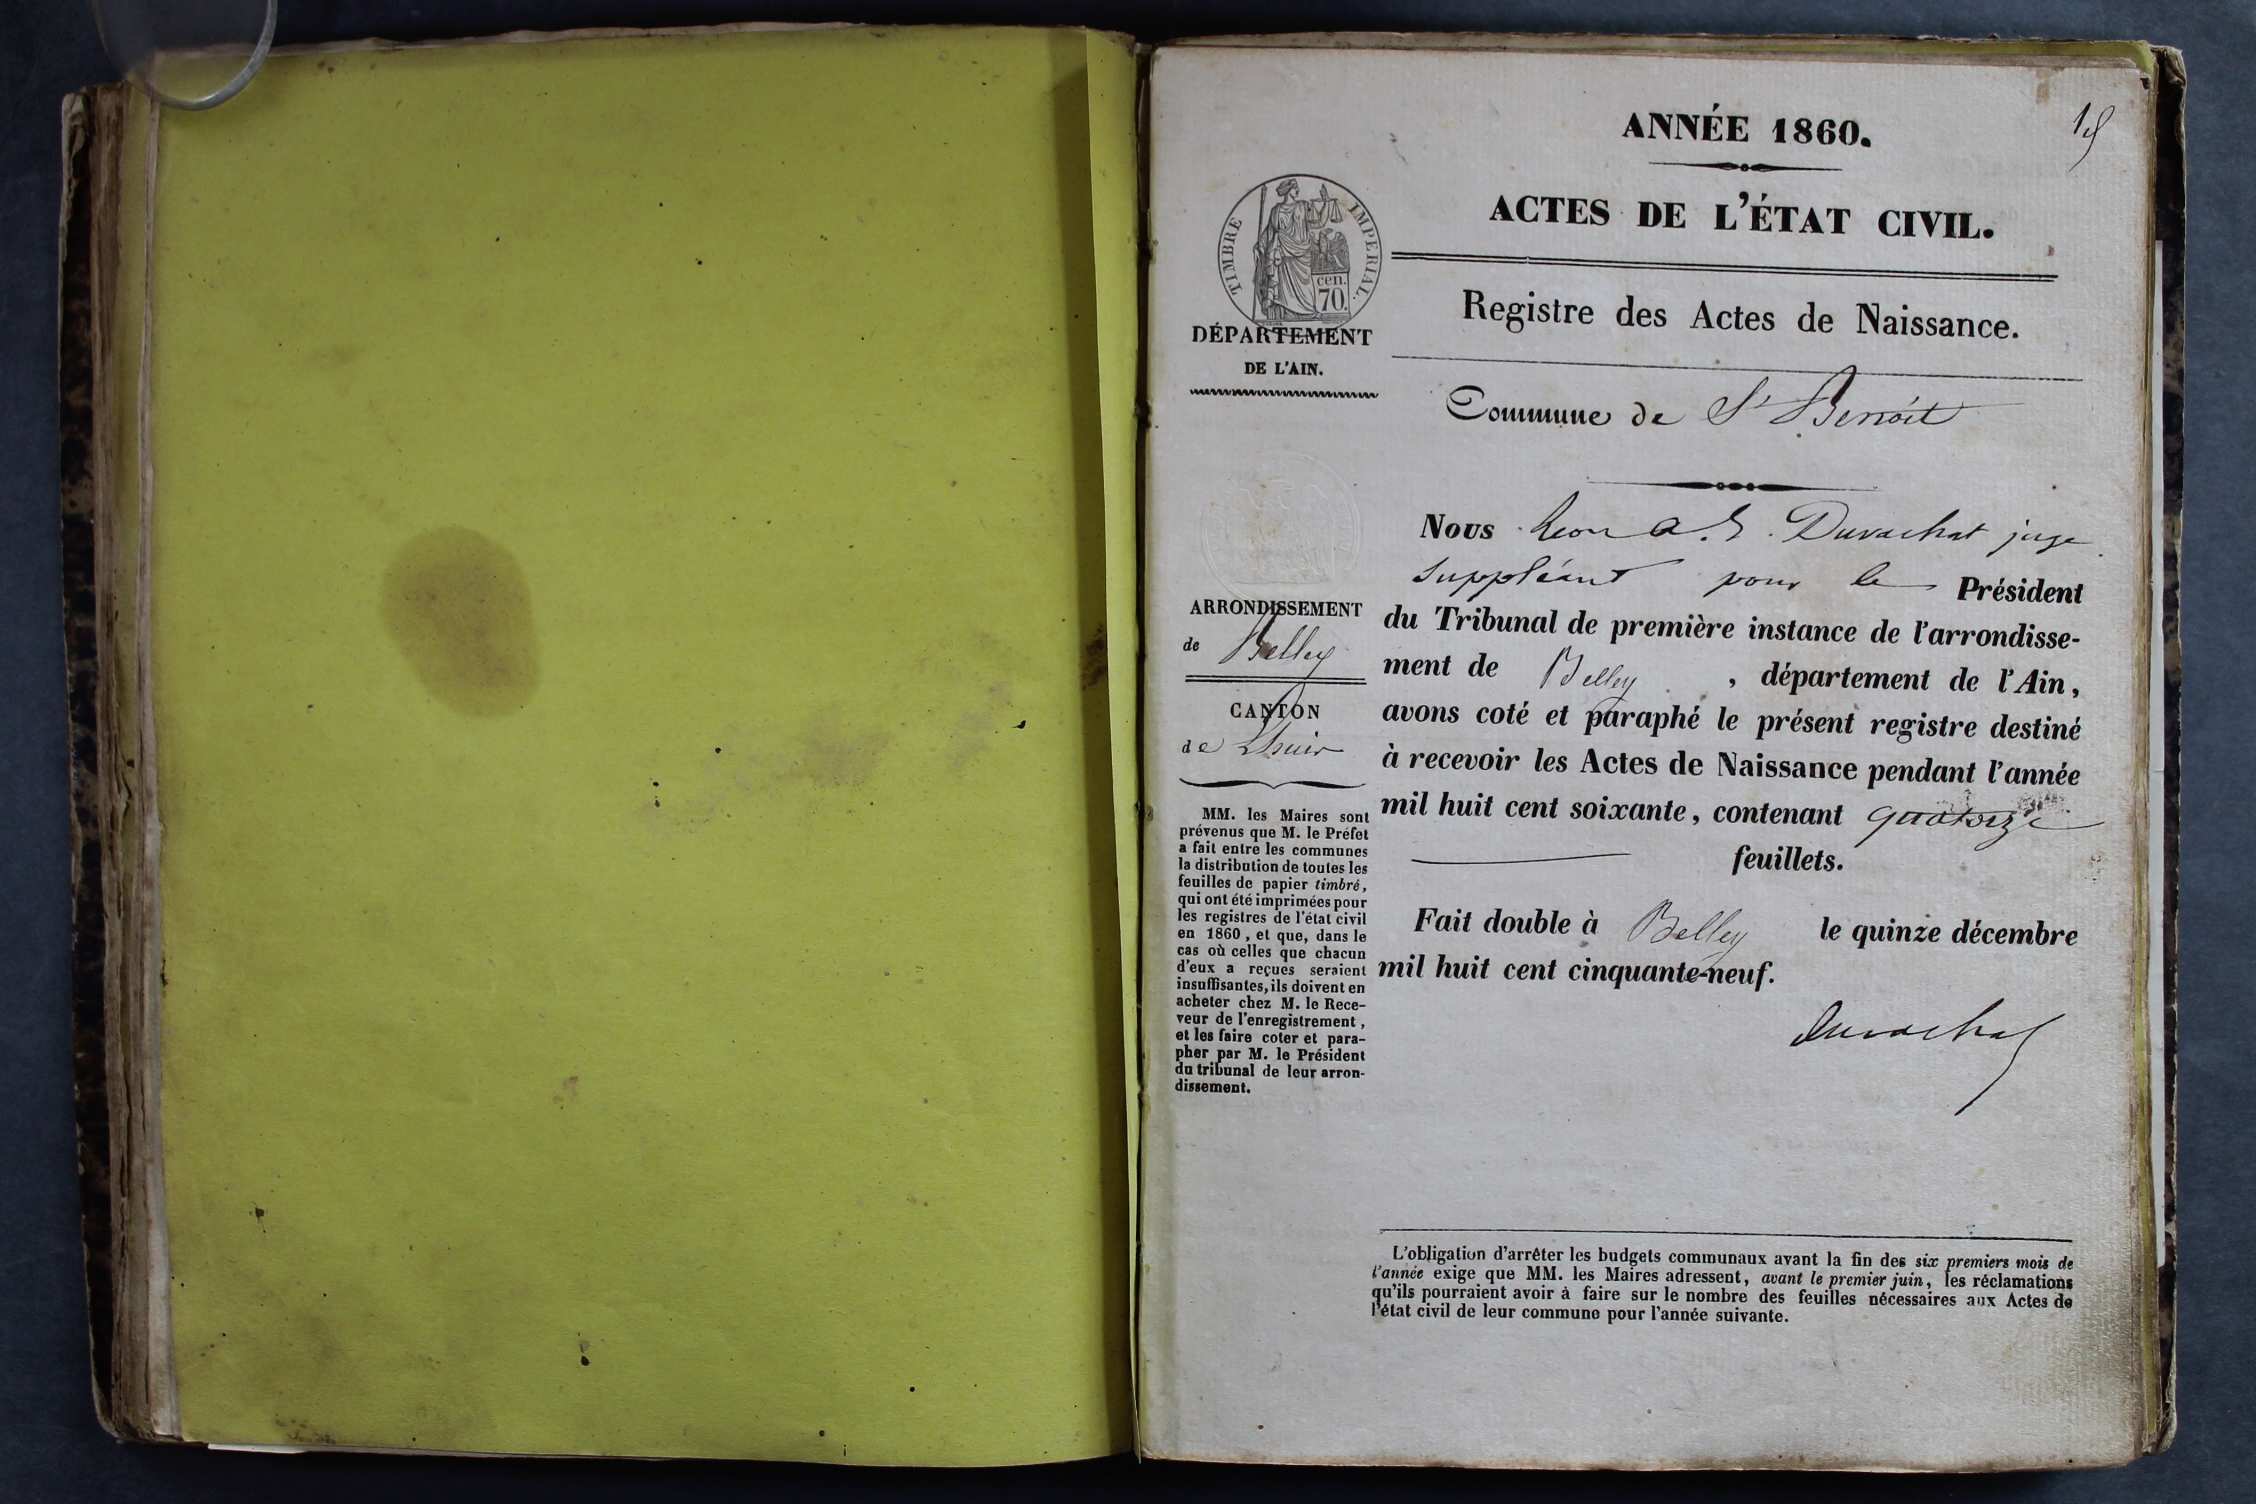 ANNÉE 1860.
ACTES DE L'ÉTAT CIVIL.
Registre des Actes de Naissance.
Commune de St Benoit
TIMBRE IMPERIAL.
cen.
70.
DÉPARTEMENT
DE L'AIN.
ARRONDISSEMENT
de Belley
CANTON
de Lhuis
MM. les Maires sont
prévenus que M. le Préfet
a fait entre les communes
la distribution de toutes les
feuilles de papier timbré,
qui ont été imprimées pour
les registres de l'état civil
en 1860, et que, dans le
cas où celles que chacun
d'eux a reçues seraient
insuffisantes, ils doivent en
acheter chez M. le Rece-
veur de l'enregistrement,
et les faire coter et para-
pher par M. le Président
du tribunal de leur arron-
dissement.
Nous Léon Duvachat juge
suppléant pour le Président
du Tribunal de première instance de l'arrondisse-
ment de Belley, département de l'Ain,
avons coté et paraphé le présent registre destiné
à recevoir les Actes de Naissance pendant l'année
mil huit cent soixante, contenant quatorze
feuillets.
Fait double à Belley le quinze décembre
mil huit cent cinquante-neuf.
Duvachat
L'obligation d'arrêter les budgets communaux avant la fin des six premiers mois de
l'année exige que MM. les Maires adressent, avant le premier juin, les réclamations
qu'ils pourraient avoir à faire sur le nombre des feuilles nécessaires aux Actes de
l'état civil de leur commune pour l'année suivante.